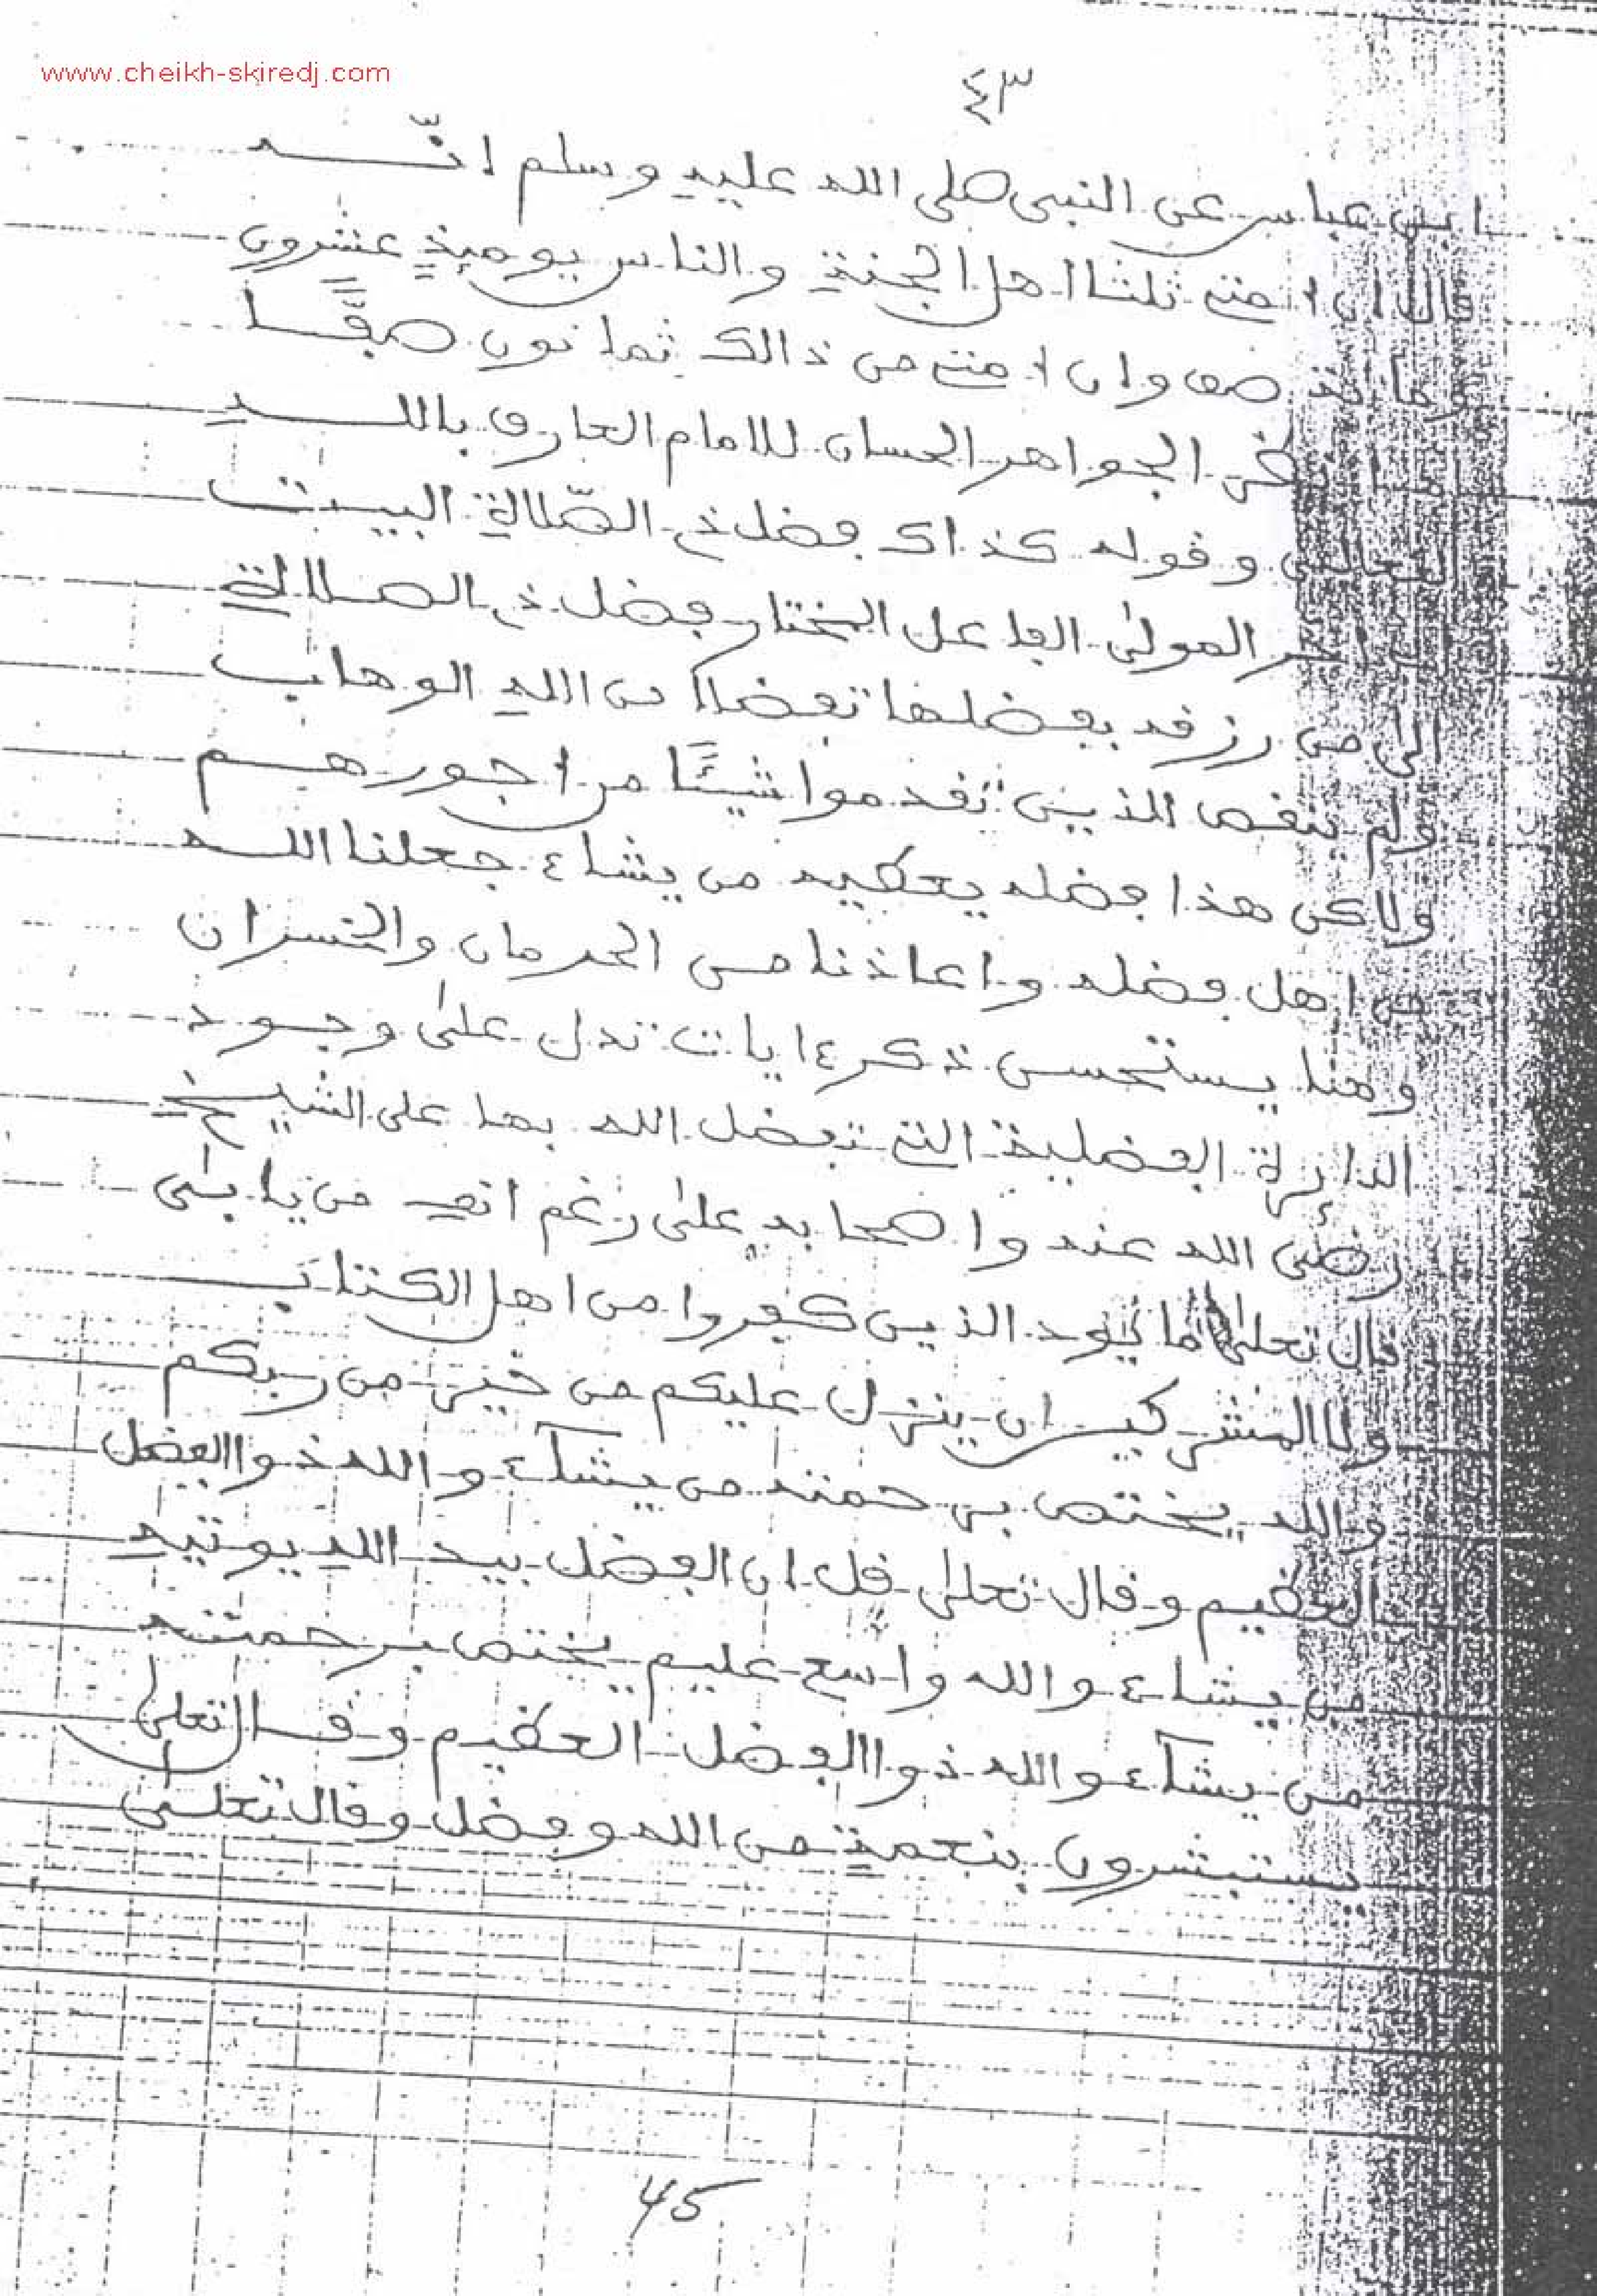 www.cheikh-skiredj.com
٤٣
ابن عباس عن النبي صلى الله عليه وسلم انّه
قال ان امتي ثلثا اهل الجنةِ والناس يومئذٍ عشرون
ومائة صف وان امتي من ذالك ثمانون صفًّا
الجواهر الحسان للامام العارف باللهِ
الثعالبي وقوله كذاك فضل ذي الصّلاة البيت
المولى الفاعل المختار فضل ذي الصلاة
الى من رزقه بفضلها تفضلا من اللهِ الوهاب
ولم ينقص الذين تقدموا شيئًا من اجورهم
ولاكن هذا فضله يعطيه من يشاء جعلنا الله
من اهل فضله واعاذنا من الحرمان والخسران
وهنا يستحسن ذكر ءايات تدل على وجود
الدائرة الفضلية التي تفضل الله بها على الشيخ
رضي الله عنه واصحابه على رغم انف من يابى
قال تعلى ما يود الذين كفروا من اهل الكتاب
ولا المشركين ان ينزل عليكم من خير من ربكم
والله يختص برحمته من يشآء والله ذوا الفضل
العظيم وقال تعلى قل ان الفضل بيد اللهِ يوتيهِ
من يشاء والله واسع عليم يختص برحمته
من يشآء والله ذوا الفضل العظيم وقال تعلى
يستبشرون بنعمةٍ من الله وفضل وقال تعلى
45